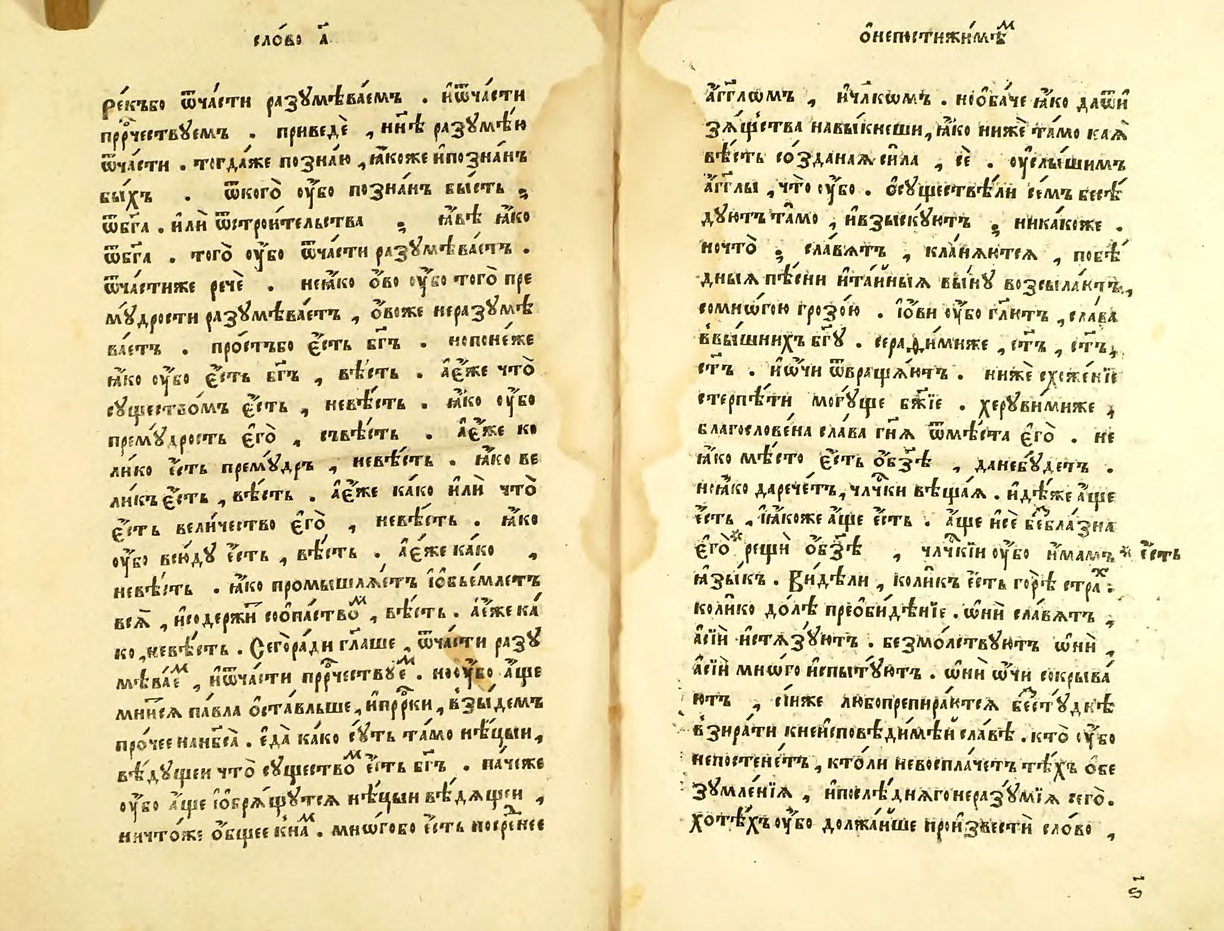 сло́во а҃
ре́къбо ѿча́сти разꙋмѣва́емъ . иѿча́сти
прⷪ҇ро́чествꙋемъ . приведѐ , нн҃ѣ разꙋмѣ́ю
ѿча́сти . тогда́же позна́ю , ꙗ҆́коже и҆позна́нъ
бы́хъ . ѿкого̀ оу҆́бо позна́нъ бы́сть ;
ѿбг҃а . и҆лѝ ѿстрои́тельства ; ꙗ҆́вѣ ꙗ҆́ко
ѿбг҃а . того̀ оу҆́бо ѿча́сти разꙋмѣва́етъ .
ѿча́стиже речѐ . неꙗ҆́ко о҆́во оу҆́бо того̀ пре
мꙋ́дрости разꙋмѣва́етъ , о҆́воже неразꙋмѣ
ва́етъ . про́стъбо є҆́сть бг҃ъ . нопоне́же
ꙗ҆́ко оу҆́бо є҆́сть бг҃ъ , вѣ́сть . а҆є҆́же что̀
сꙋщество́мъ є҆́сть , невѣ́сть . ꙗ҆́ко оу҆́бо
премꙋ́дрость є҆го̀ , съвѣ́сть . а҆є҆́же ко
ли́ко є҆́сть премꙋ́дръ , невѣ́сть . ꙗ҆́ко ве
ли́къ є҆́сть , вѣ́сть . а҆є҆́же ка́ко и҆лѝ что̀
є҆́сть вели́чество є҆го̀ , невѣ́сть . ꙗ҆́ко
оу҆́бо всю́дꙋ є҆́сть , вѣ́сть . а҆є҆́же ка́ко ,
невѣ́сть . ꙗ҆́ко промышлѧ́етъ і҆объе́млетъ
всѧ̀ , и҆содержи́тъ соо҆па́ствоⷨ , вѣ́сть . а҆є҆́же ка́
ко , невѣ́сть . Сего̀ра́ди гл҃аше , ѿча́сти разꙋ
мѣва́еⷨ , и҆ѿча́сти прⷪ҇ро́чествꙋеⷨ . ноо҆у҆́бо а҆́ще
мни́тсѧ па́вла о҆ста́вльше , и҆прⷪ҇ро́ки , взы́демъ
про́чее нанб҃са̀ . є҆да̀ ка́ко сꙋ́ть та́мо нѣ́цыи ,
вѣ́дꙋщеи что̀ сꙋщество́ⷨ є҆́сть бг҃ъ . па́чеже
оу҆́бо а҆́ще і҆обрѧ́щꙋтсѧ нѣ́цыи вѣ́дѧщеи ,
ничто́же о҆́бщее кна́ⷨ . мно́гобо є҆́сть посре́днее
ѡ҆непостижи́мѣⷨ
а҆́гг҃лѡмъ , и҆чл҃кѡмъ . нео҆ба́че ꙗ҆́ко даѿи
зѧ́щества навы́кнеши , ꙗ҆́ко нижѐ та́мо ка́ѧ
вѣ́сть со́зданаѧ си́ла , сѐ . оу҆слы́шимъ
а҆́гг҃лы , что̀ оу҆́бо . о҆сꙋществѣ́ли се́мъ бесѣ́
дꙋютъ та́мо , и҆взы́скꙋютъ ; ника́коже .
ночто̀ ; сла́вѧтъ , кла́нѧются , побѣ́
дныѧ пѣ́сни и҆та́йныѧ вы́нꙋ возсыла́ютъ ,
сомно́гою гро́зо́ю . і҆о́ви оу҆́бо гл҃ютъ , сла́ва
ввы́шнихъ бг҃ꙋ . серафи́миже , ст҃ъ , ст҃ъ ,
ст҃ъ . и҆ѡ҆́чи ѿвраща́ютъ . нижѐ схожде́нїе
стерпѣ́ти могꙋ́ще бж҃їе . херꙋви́миже ,
благослове́на сла́ва гн҃ѧ ѿмѣ́ста є҆гѡ̀ . не
ꙗ҆́ко мѣ́сто є҆́сть о҆бз҃ѣ , данебꙋ́детъ .
неꙗ҆́ко дарече́тъ , чл҃чки вѣща́ѧ . и҆дѣ́же а҆́ще
є҆́сть , и҆ꙗ҆́коже а҆́ще є҆́сть . а҆́ще и҆сѐ безбла́зна
є҆го̀ * рещѝ о҆бз҃ѣ , чл҃чкїи оу҆́бо и҆́мамъ * є҆́сть
ꙗ҆зы́къ . Ви́дѣли , коли́къ є҆́сть горѣ̀ стра́ⷯ :
коли́ко до́лѣ преоби́дѣнїе . ѡ҆нѝ сла́вѧтъ ,
а҆сі́й и҆стѧзꙋ́ютъ . безмо́лствꙋютъ ѡ҆нѝ ,
а҆сі́й мно́го и҆спытꙋ́ютъ . ѡ҆нѝ ѡ҆́чи сокрыва́
ютъ , сі́иже любопрепира́ютсѧ безстꙋ́днѣ
взира́ти кнеи҆сповѣди́мѣй сла́вѣ . кто̀ оу҆́бо
непостене́тъ , кто́ли невоспла́четъ тѣ́хъ о҆бе
зꙋмле́нїѧ , и҆послѣ́днѧго неразꙋ́мїѧ сего̀ .
хотѣ́хъ оу҆́бо должа́йше произвестѝ сло́во ,
ѕ҃